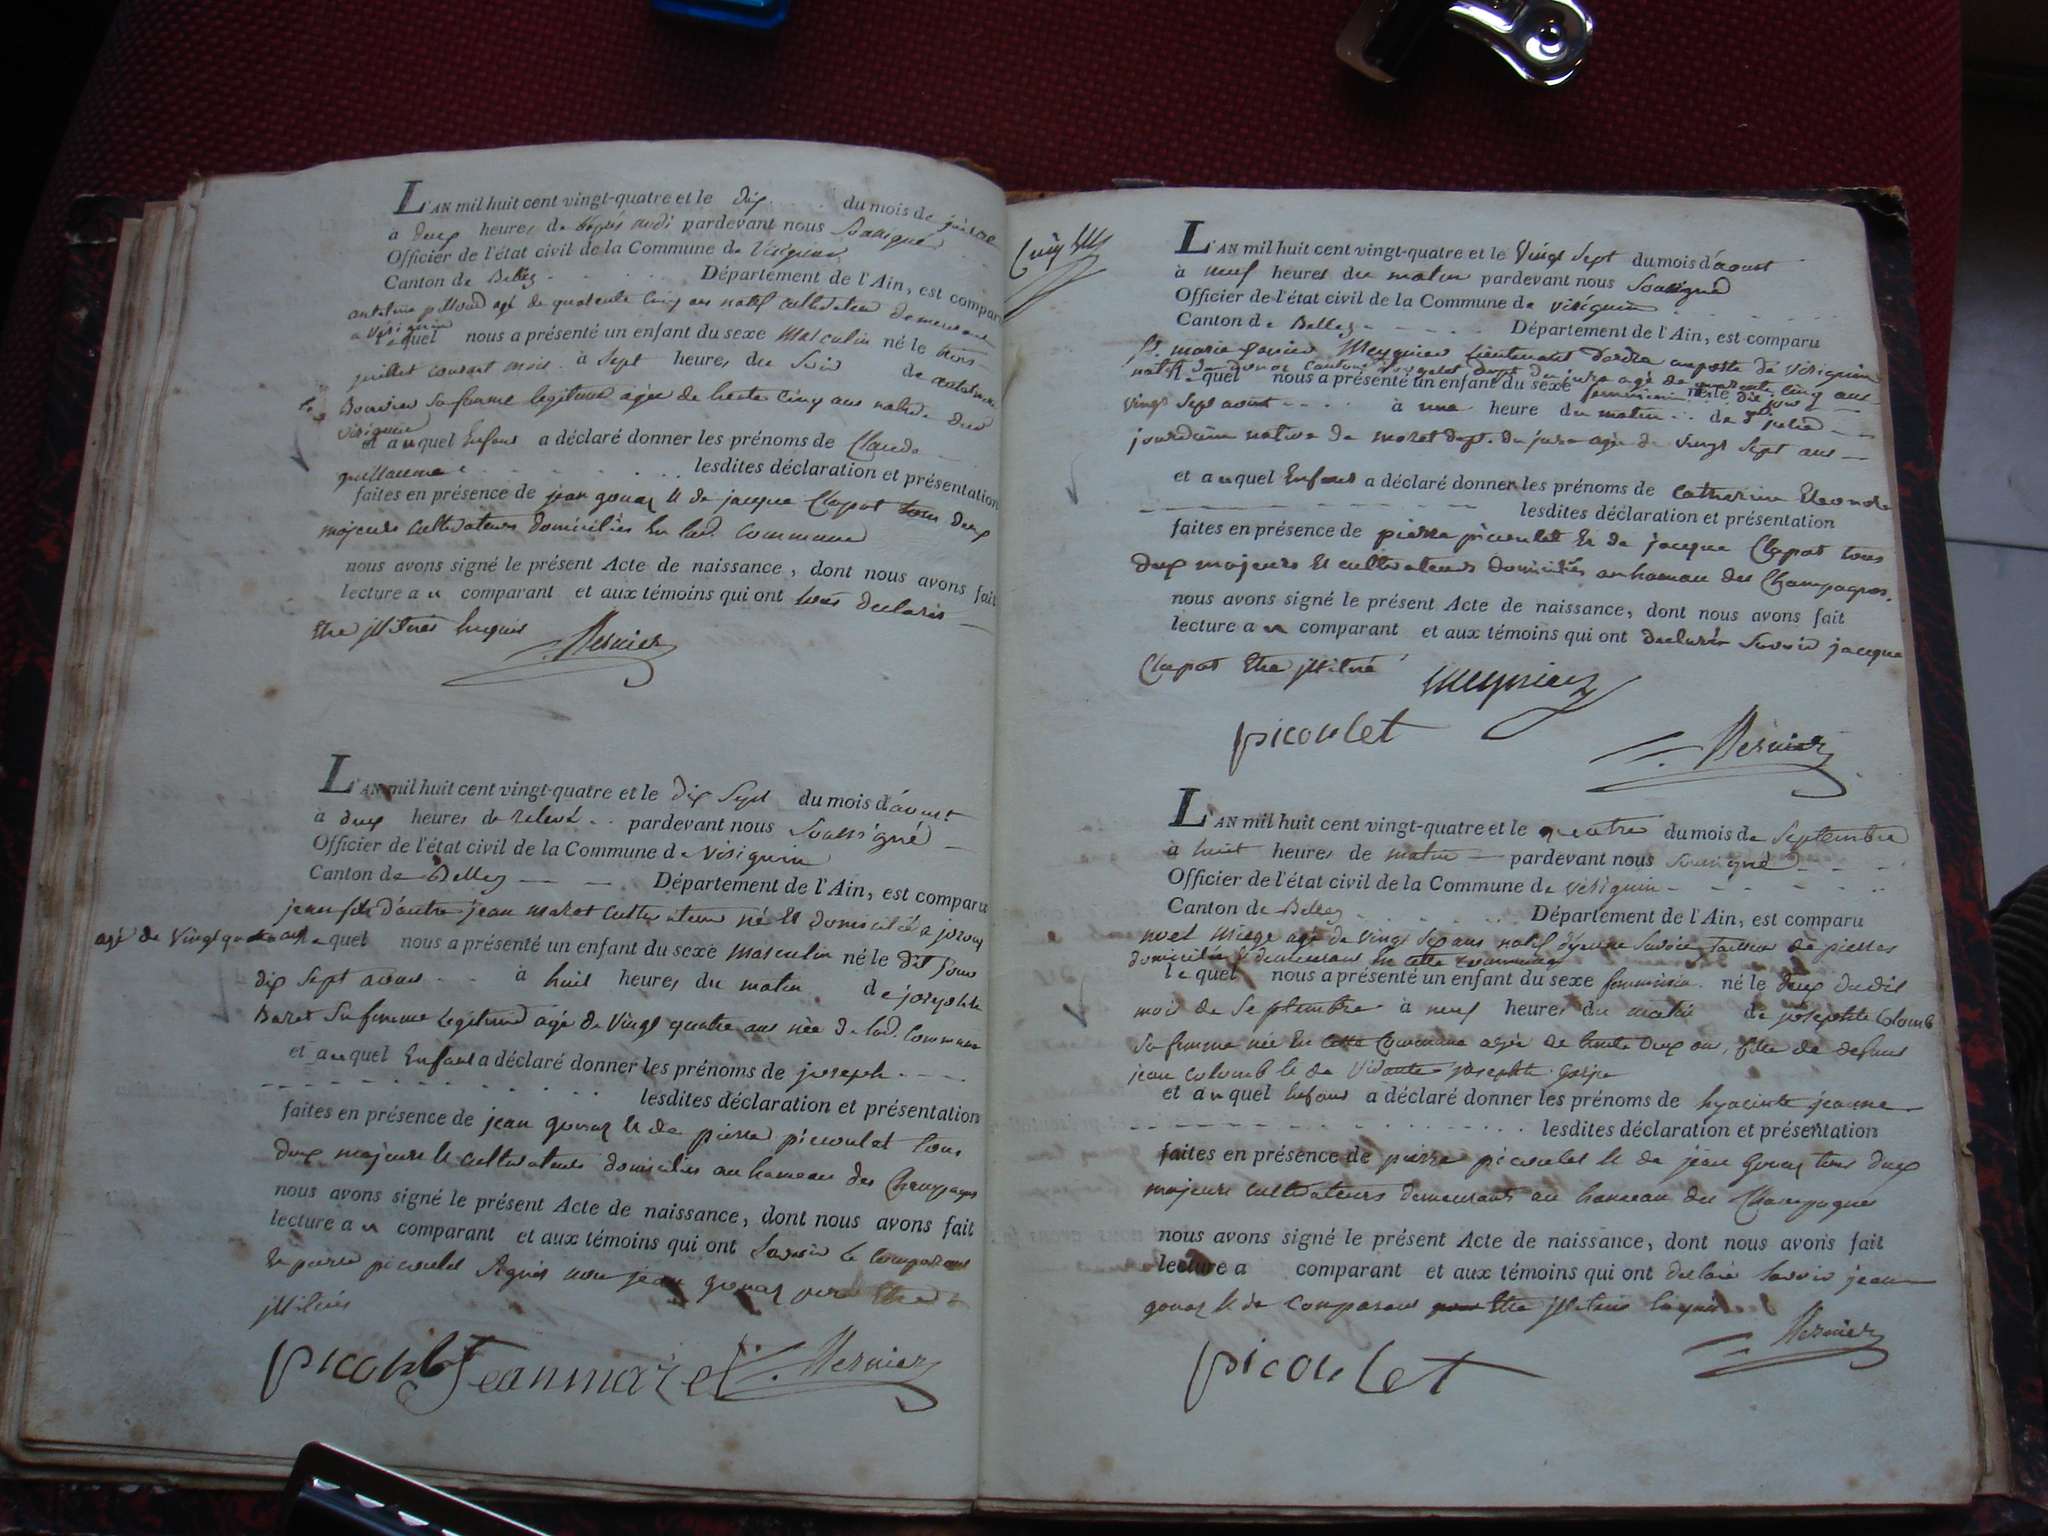 L'AN mil huit cent vingt-quatre et le dix du mois de juillet
à deux heures de après midi pardevant nous Soussigné
Officier de l'état civil de la Commune de Virignin
Canton de Belley Département de l'Ain, est comparu
agé de quarente cinq ans natif cultivateur demeurant
a virignin lequel nous a présenté un enfant du sexe Masculin né le trois
juillet courant mois à Sept heures du Soir de
Sa femme legitime agée de trente Cinq ans native dud
virignin
et auquel Enfant a déclaré donner les prénoms de Claude
guillaume lesdites déclaration et présentation
faites en présence de jean gonaz et de jacque Clapot tous deux
majeurs cultivateurs domiciliés En lad. Commune
nous avons signé le présent Acte de naissance, dont nous avons fait
lecture au comparant et aux témoins qui ont tous declarés
Etre illitérés
L'AN mil huit cent vingt-quatre et le dix Sept du mois d'aoust
à deux heures de relevé pardevant nous Soussigné
Officier de l'état civil de la Commune de Virignin
Canton de Belley Département de l'Ain, est comparu
jean fils d'autre jean maret cultivateur né Et domicilié a
agé de Vingt quatre ans lequel nous a présenté un enfant du sexe masculin né le dit jour
dix Sept aoust à huit heures du matin de josephte
Sa femme legitime agé de Vingt quatre ans née de lad. Commune
et auquel Enfant a déclaré donner les prénoms de joseph
lesdites déclaration et présentation
faites en présence de jean gonaz et de pierre picoulet tous
deux majeurs et cultivateurs domiciliés au hameau des Champagnes
nous avons signé le présent Acte de naissance, dont nous avons fait
lecture au comparant et aux témoins qui ont Savoir le comparant
Et pierre picoulet Signés non jean gonaz pour Etre
illitérés
picoulet Jean maret
L'AN mil huit cent vingt-quatre et le Vingt Sept du mois d'aoust
à neuf heures du matin pardevant nous Soussigné
Officier de l'état civil de la Commune de virignin
Canton de Belley Département de l'Ain, est comparu
marie Meynier Lieutenant d'ordre au poste de virignin
natif de dept du jura agé de quarente cinq ans
lequel nous a présenté un enfant du sexe femminin né le dit jour
vingt Sept aoust à une heure du matin de julie
native de moret dept. du jura agée de vingt Sept ans
et auquel Enfant a déclaré donner les prénoms de Catherine Eleonore
lesdites déclaration et présentation
faites en présence de pierre picoulet Et de jacque Clapot tous
deux majeurs Et cultivateurs domiciliés au hameau des Champagnes.
nous avons signé le présent Acte de naissance, dont nous avons fait
lecture au comparant et aux témoins qui ont declarés Savoir jacque
Clapot Etre illitéré
Meynier
picoulet
L'AN mil huit cent vingt-quatre et le quatre du mois de Septembre
à huit heures de matin pardevant nous soussigné
Officier de l'état civil de la Commune de virignin
Canton de Belley Département de l'Ain, est comparu
noel Miege agé de vingt ans natif d'yenne Savoie tailleur de pierres
domicilié Et demeurant En cette commune
lequel nous a présenté un enfant du sexe femminin né le deux dudit
mois de Septembre à neuf heures du matin de josephte Colomb
Sa femme née En cette Commune agée de trente deux ans, fille de defunt
jean colomb et de vivante josephte
et auquel Enfant a déclaré donner les prénoms de hyacinte jeanne
lesdites déclaration et présentation
faites en présence de pierre picoulet et de jean gonaz tous deux
majeurs cultivateurs demeurants au hameau des Champagnes
nous avons signé le présent Acte de naissance, dont nous avons fait
lecture a comparant et aux témoins qui ont declaré Savoir jean
gonaz et de comparant Etre illitérés
picoulet